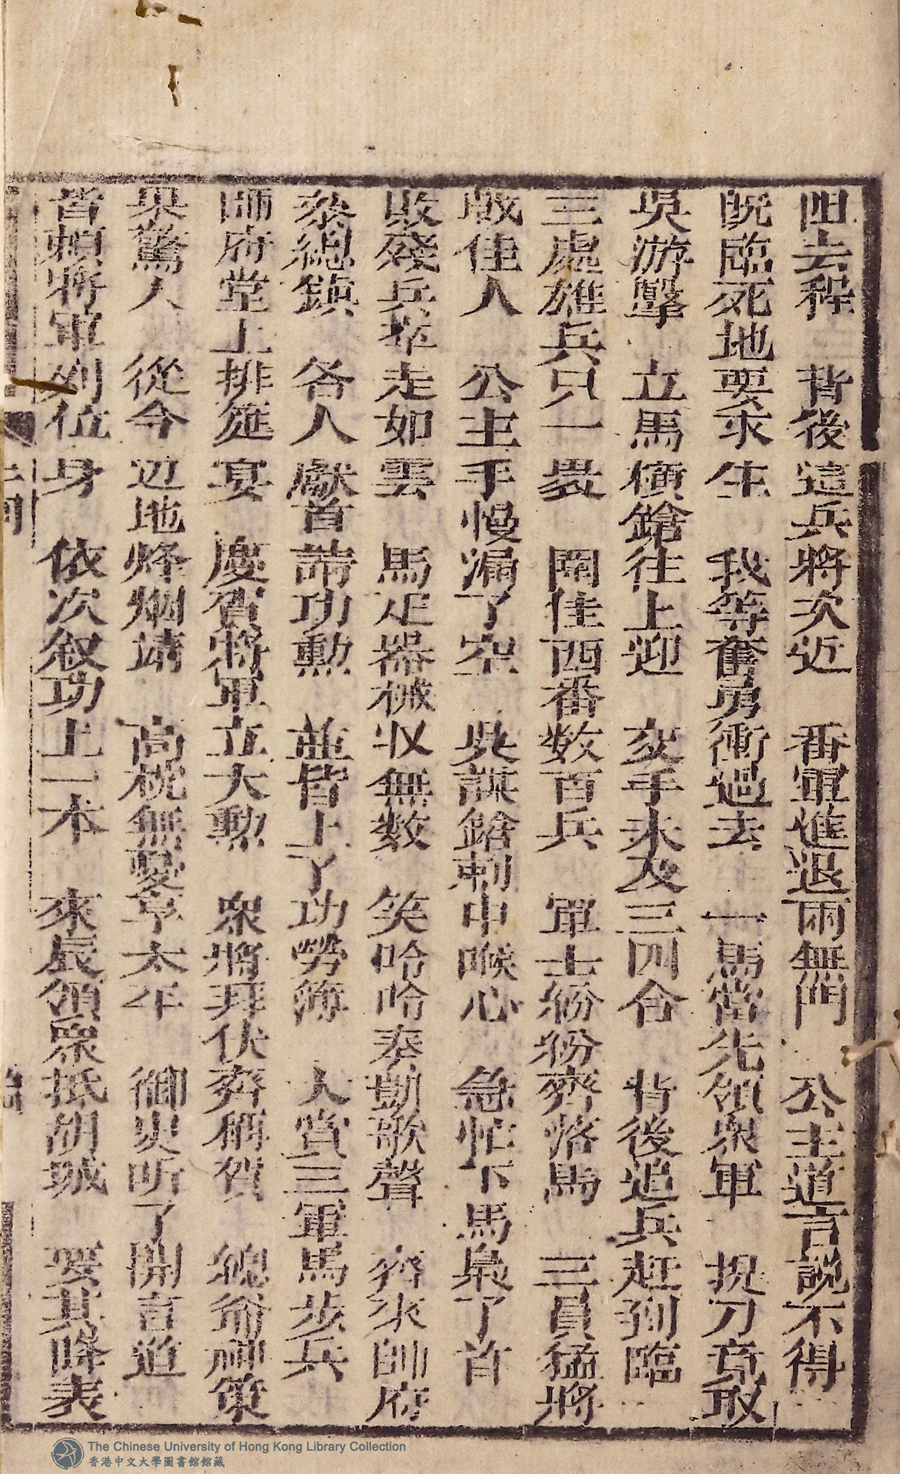 阻去程　背後這兵將次近　番軍進退兩無門　公主道言説不得
既臨死地要求生　我等奮勇衝過去　一馬當先領衆軍　提刀竟取
吳游擊　立馬橫鎗往上迎　交手未及三四合　背後追兵赶到臨
三處雄兵只一裹　圍住西番数百兵　軍士紛紛齊落馬　三員猛將
戰佳人　公主手慢漏了空　吳謀鎗刺中喉心　急忙下馬梟了首
敗殘兵卒走如雲　馬疋器械収無數　笑哈哈奏凱歌聲　齊來帥府
叅總鎮　各人獻首請功勳　並皆上了功勞簿　大賞三軍馬步兵
師府堂上排筵宴　慶賀將軍立大勲　衆將拜伏齊稱賀　總爺神策
果驚人　從今辺地烽烟靖　高枕無憂享太平　御史听了開言道
皆頼將軍列位身　依次叙功上一本　來辰領衆抵胡城　要其降表
The Chinese University of Hong Kong Library Collection
香港中文大學圖書館館藏